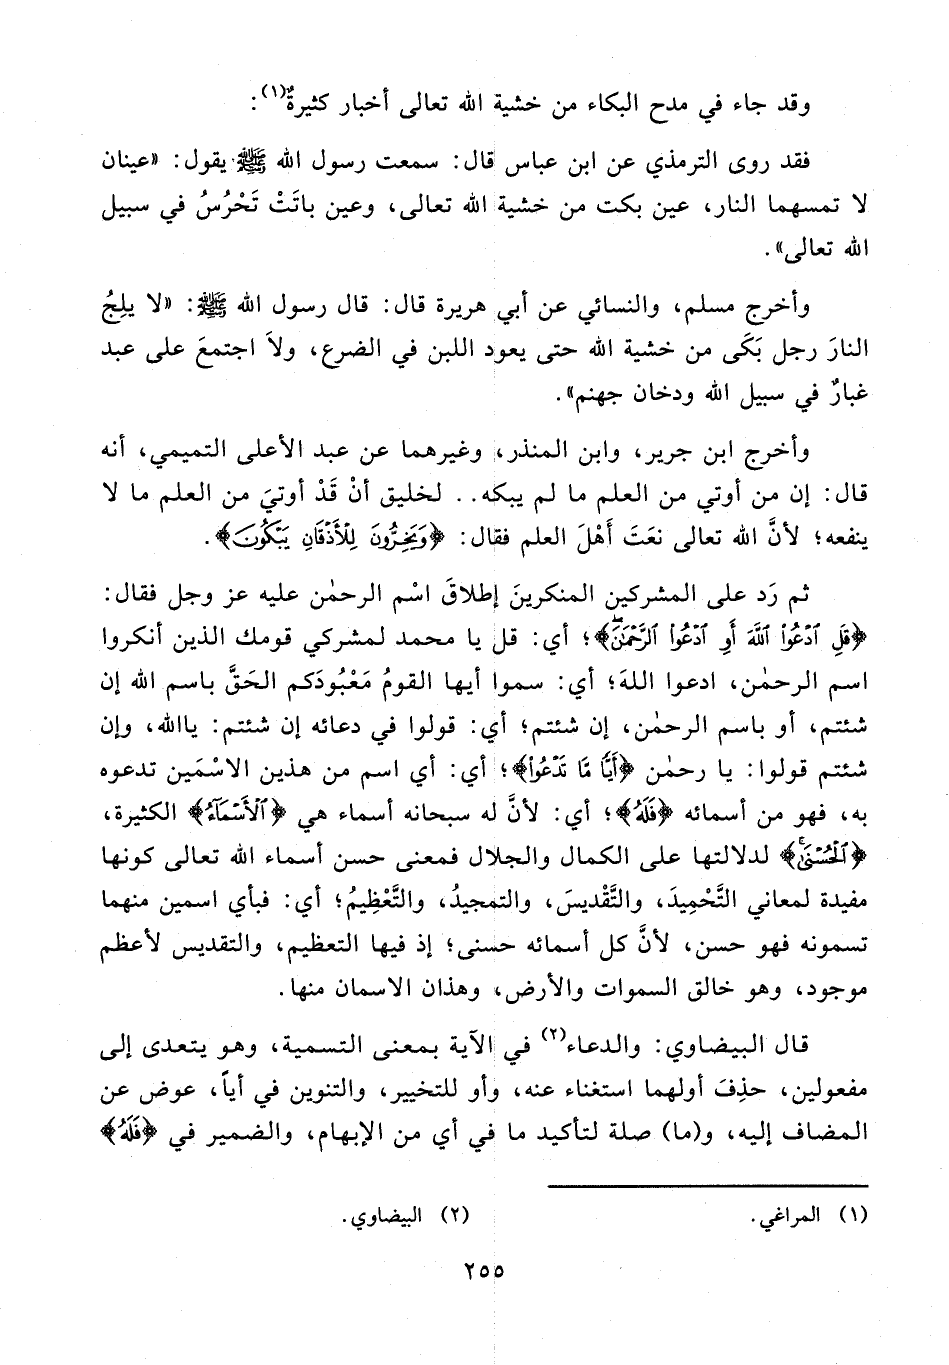 وقد جاء في مدح البكاء من خشية الله تعالى أخبار كثيرةٌ(١):
فقد روى الترمذي عن ابن عباس قال: سمعت رسول الله ﷺ يقول: «عينان
لا تمسهما النار، عين بكت من خشية الله تعالى، وعين باتَتْ تَحْرُسُ في سبيل
الله تعالى».
وأخرج مسلم، والنسائي عن أبي هريرة قال: قال رسول الله ﷺ: «لا يلِجُ
النارَ رجل بَكَى من خشية الله حتى يعود اللبن في الضرع، ولاَ اجتمعَ على عبد
غبارٌ في سبيل الله ودخان جهنم».
وأخرج ابن جرير، وابن المنذر، وغيرهما عن عبد الأعلى التميمي، أنه
قال: إن من أوتي من العلم ما لم يبكه.. لخليق أنْ قَدْ أوتيَ من العلم ما لا
ينفعه؛ لأنَّ الله تعالى نعَتَ أَهْلَ العلم فقال: ﴿وَيَخِرُّونَ لِلْأَذْقَانِ يَبْكُونَ﴾.
ثم رَد على المشركين المنكرينَ إطلاقَ اسْم الرحمٰن عليه عز وجل فقال:
﴿قُلِ ٱدْعُوا۟ ٱللَّهَ أَوِ ٱدْعُوا۟ ٱلرَّحْمَٰنَۖ﴾؛ أي: قل يا محمد لمشركي قومك الذين أنكروا
اسم الرحمٰن، ادعوا اللهَ؛ أي: سموا أيها القومُ مَعْبُودَكم الحَقَّ باسم الله إن
شئتم، أو باسم الرحمٰن، إن شئتم؛ أي: قولوا في دعائه إن شئتم: ياالله، وإن
شئتم قولوا: يا رحمٰن ﴿أَيًّا مَّا تَدْعُوا۟﴾؛ أي: أي اسم من هذين الاسْمَين تدعوه
به، فهو من أسمائه ﴿فَلَهُ﴾؛ أي: لأنَّ له سبحانه أسماء هي ﴿ٱلْأَسْمَآءُ﴾ الكثيرة،
﴿ٱلْحُسْنَىٰۚ﴾ لدلالتها على الكمال والجلال فمعنى حسن أسماء الله تعالى كونها
مفيدة لمعاني التَّحْمِيدَ، والتَّقْديسَ، والتمجيدُ، والتَّعْظِيمُ؛ أي: فبأي اسمين منهما
تسمونه فهو حسن، لأنَّ كل أسمائه حسنى؛ إذ فيها التعظيم، والتقديس لأعظم
موجود، وهو خالق السموات والأرض، وهذان الاسمان منها.
قال البيضاوي: والدعاء(٢) في الآية بمعنى التسمية، وهو يتعدى إلى
مفعولين، حذِفَ أولهما استغناء عنه، وأو للتخيير، والتنوين في أياً، عوض عن
المضاف إليه، و(ما) صلة لتأكيد ما في أي من الإبهام، والضمير في ﴿فَلَهُ﴾
(١) المراغي. (٢) البيضاوي.
٢٥٥